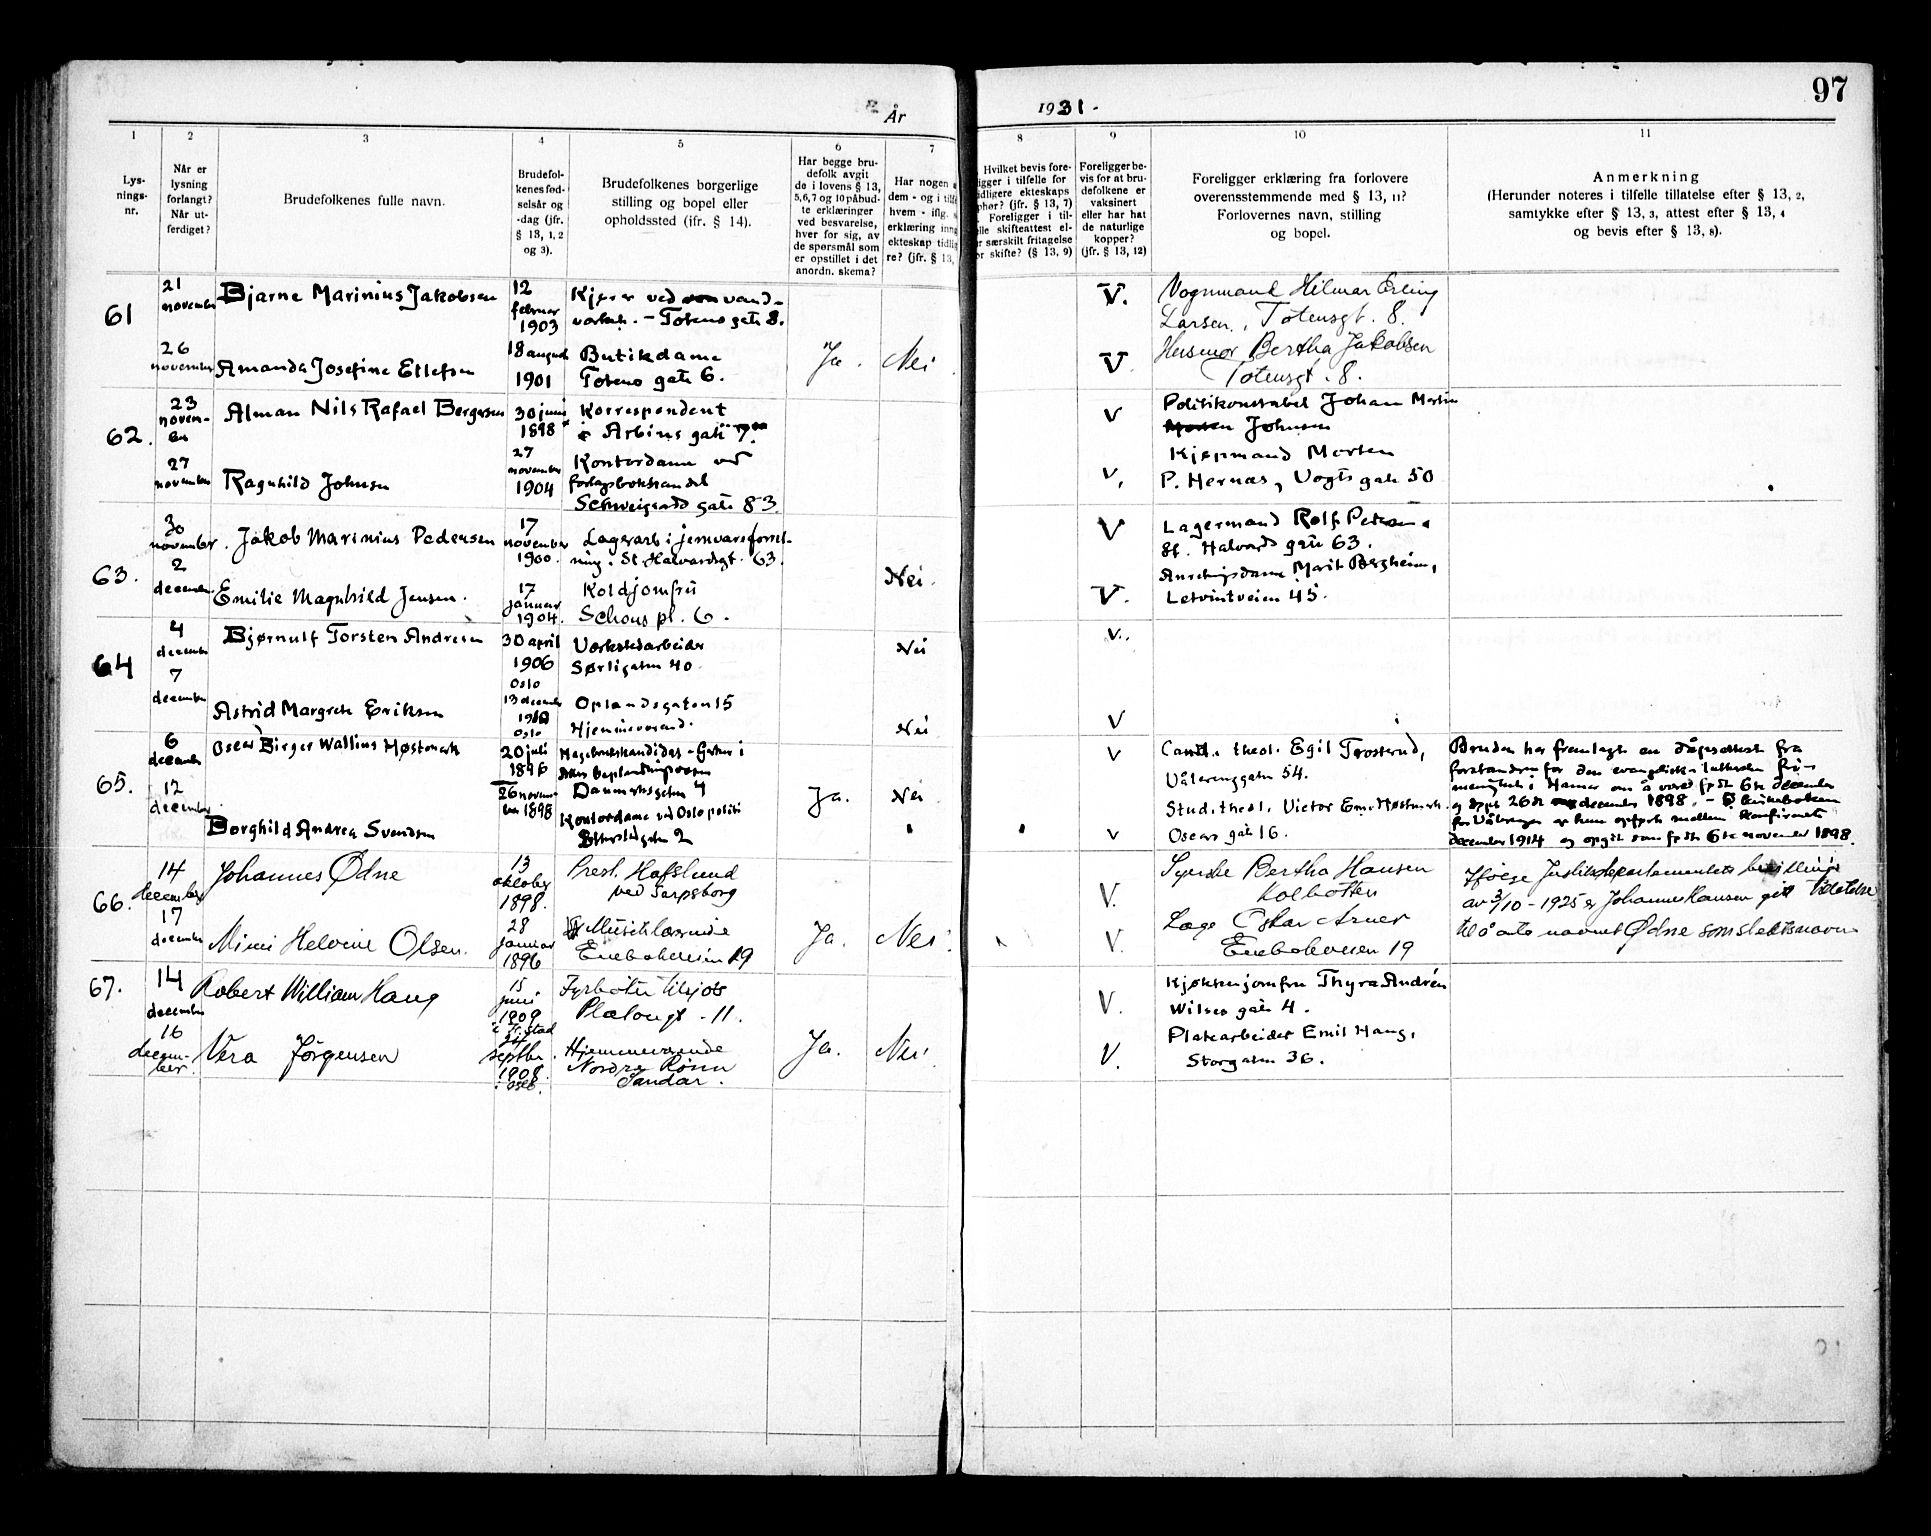 97
År 1931.
1
2
3
4
5
6
7
8
9
10
11
Lys-
nings-
nr.
Når er
lysning
forlangt?
Når ut-
ferdiget?
Brudefolkenes fulle navn.
Brudefol-
kenes fød-
selsår og
-dag (jfr.
§ 13, 1, 2
og 3).
Brudefolkenes borgerlige
stilling og bopel eller
opholdssted (jfr. § 14).
Har begge bru-
defolk avgit
de i lovens § 13,
5, 6, 7 og 10 påbud-
te erklæringer
ved besvarelse,
hver for sig, av
de spørsmål som
er opstillet i det
anordn. skema?
Har nogen
dem - og i tilf
hvem - iflg.
erklæring inng
ekteskap tidlig
re? (jfr. § 13,
Hvilket bevis fore-
ligger i tilfelle for
tidligere ekteskaps
ophør? (jfr. § 13, 7)
Foreligger i til-
felle skifteattest el-
r særskilt fritagelse
or skifte? (§ 13, 9)
Foreligger be-
vis for at bru-
defolkene er
vaksinert
eller har hat
de naturlige
kopper?
(jfr. § 13, 12)
Foreligger erklæring fra forlovere
overensstemmende med § 13, 11?
Forlovernes navn, stilling
og bopel.
Anmerkning
(Herunder noteres i tilfelle tillatelse efter § 13, 2,
samtykke efter § 13, 3, attest efter § 13, 4
og bevis efter § 13, 8).
61
21
november
Bjarne Marinius Jakobsen
12
februar
1903
ved vand-
- Totens gate 8.
V.
Vognmand Hilmar Erling
Larsen, Totensgt. 8.
26
november
Amanda Josefine Ellefsen
18 august
1901
Butikdame
Totens gate 6.
Ja.
Nei
V
Husmor Bertha Jakobsen
Totensgt. 8.
62.
23
novem-
ber
Alman Nils Rafael Bergersen
30 juni
1898
Korrespondent
Arbins gate 7.
V
Politikonstabel Johan Martin
Johnsen
27
november
Ragnhild Johnsen
27
november
1904
Kontordame ved
forlagsbokhandel
Schweigaards gate 83.
V,
Kjøpmand Morten
P. Hernæs, Vogts gate 50
63.
30
november.
Jakob Marinius Pedersen
17
november
1900.
Lagerarb. i jernvareforret-
ning. St Halvardsgt. 63.
V
Lagermand Rolf Petersen
St. Halvards gate 63.
2
december
Emilie Magnhild Jensen.
17
januar
1904.
Koldjomfru
Schous pl. 6.
Nei.
V.
Marit Bergheim,
45.
64
4
december
Bjørnulf Torsten Andresen
30 april
1906
Oslo
Verkstedarbeider
Sørligaten 40.
Nei
V.
7
december
Astrid Margrete Eriksen
13 december
Oslo
Oplandsgaten 15
Hjemmeværende.
Nei
V
65.
6
december
Oscar Birger Wallius Høstmark
20 juli
1896
Havebrukskandidat - Gartner i
Danmarksgaten 4
V
Cand. theol. Egil Trosterud,
Vålerenggaten 54.
Bruden har fremlagt en dåpsattest fra
forstanderen for den evangelisk-lutherske fri-
menighet i Hamar om å være født 6te december
og døpt 26de december 1898. - I kirkeboken
for Vålerengen er hun opført mellem konfirmerte
december 1914 og opgit som født 6te november 1898.
12
december
Borghild Andrea Svendsen
26 novem-
ber 1898
Kontordame ved Oslo politi
2
Ja.
Nei
V
Stud. theol. Victor Em. Høstmark.
Oscars gate 16.
66.
14
december
Johannes Ødne
13
oktober
1898.
Prest. Hafslund
ved Sarpsborg
V.
Syerske Bertha Hansen
Kolbotten
Ifølge Justisdepartementets bevilling
av 3/10 - 1925 er Johannes Hansen gitt tillatelse
til å ta navnet Ødne som slektsnavn
17
december
Mimi Helvine Olsen.
28
januar
1896
Musiklærerinde
Enebakveien 19
Ja.
Nei.
V.
Læge Oskar Arner
Enebakveien 19
67.
14
december
Robert William Haug
15
juni
1909
Fr.stad
Fyrbøter tilsjøs
Platougt. 11.
V.
Kjøkkenjomfru Thyra Andrén
Wilses gate 4.
16
decem-
ber.
Vera Jörgensen
24
septbr.
1908.
Oslo.
Hjemmeværende
Nordre
Sandar.
Ja.
Nei.
V.
Platearbeider Emil Haug,
Storgaten 36.